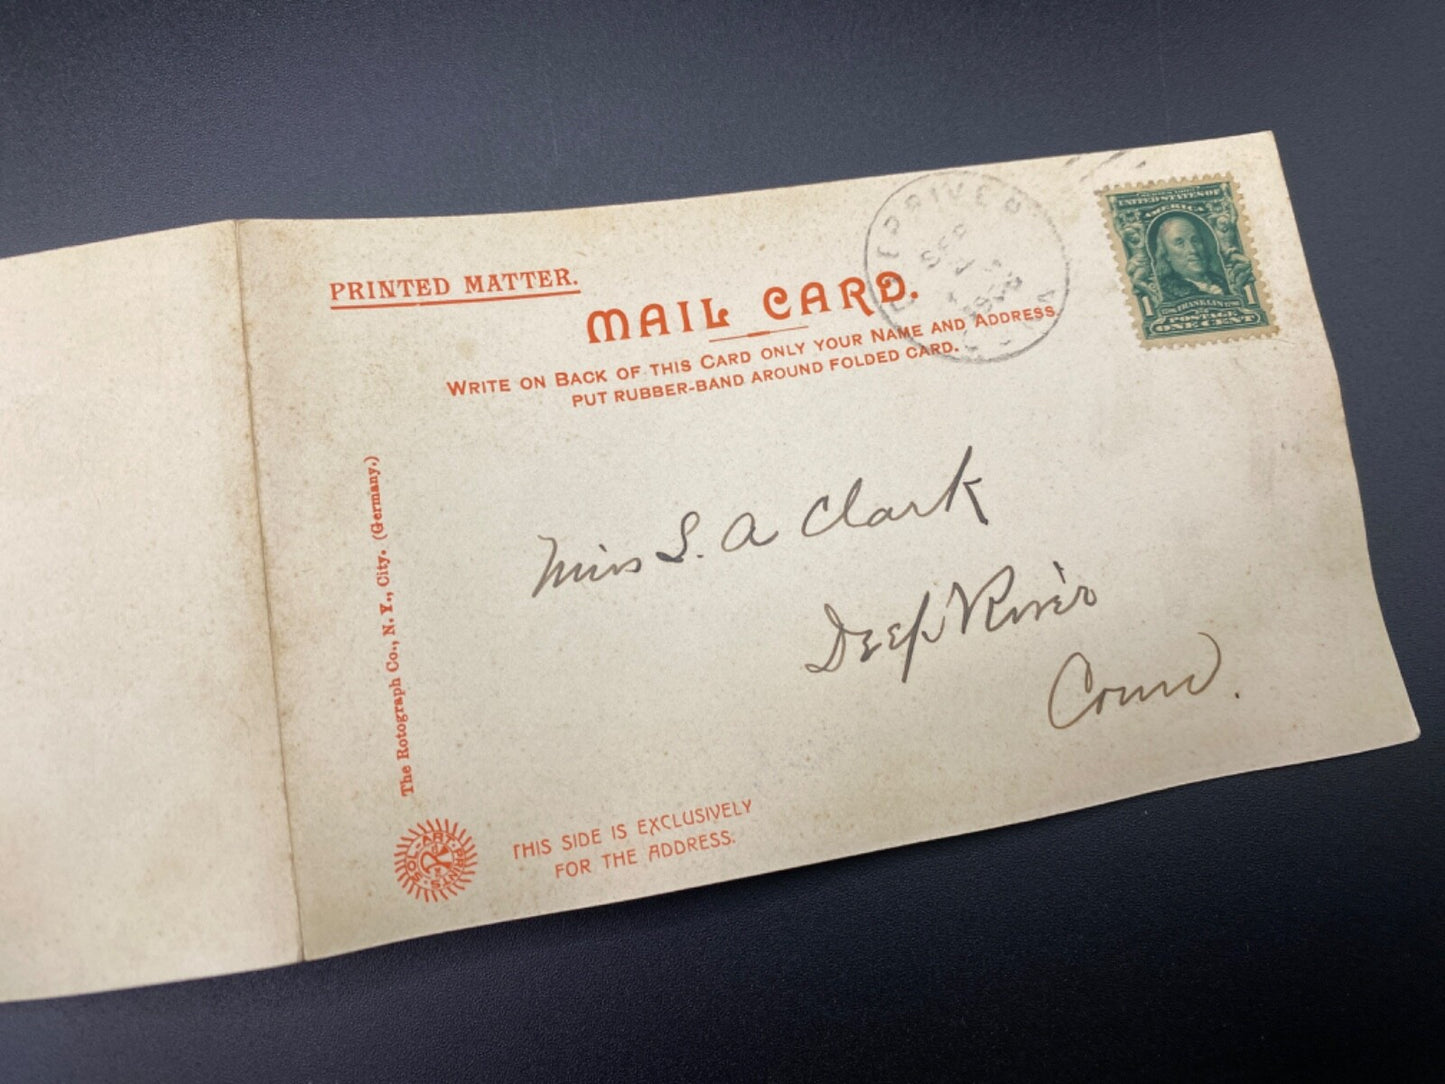 PRINTED MATTER.
MAIL CARD.
WRITE ON BACK OF THIS CARD ONLY YOUR NAME AND ADDRESS.
PUT RUBBER-BAND AROUND FOLDED CARD.
DEEP RIVER
SEP
SERIES 1902
UNITED STATES OF
AMERICA
FRANKLIN
1 POSTAGE 1
ONE CENT
Miss S. A Clark
Deep River
Conn.
The Rotograph Co., N. Y., City. (Germany.)
SOL-ART-PRINTS
THIS SIDE IS EXCLUSIVELY
FOR THE ADDRESS.